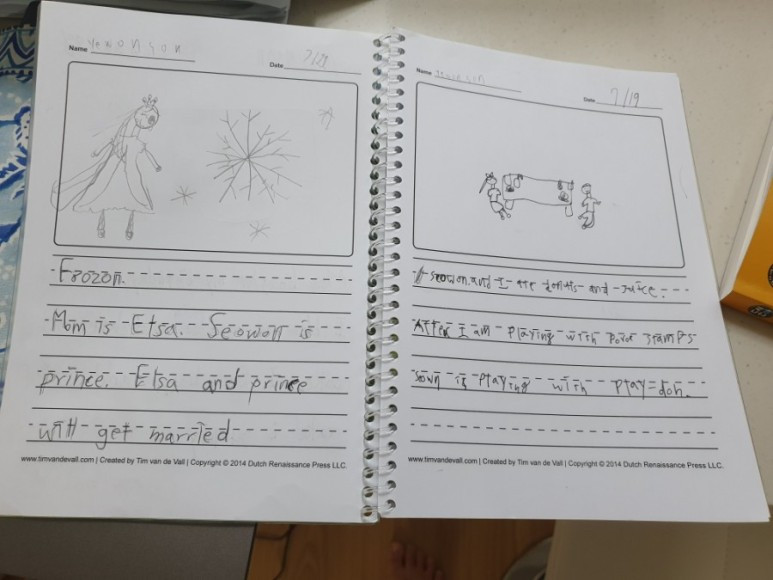 Name
Date
Frozon.
Mom is Elsa. Seowon is
prince. Elsa and prince
will get married
www.timvandevall.com | Created by Tim van de Vall | Copyright © 2014 Dutch Renaissance Press LLC.
Name
Date 7/19
seowon and I ate donuts and
After I am playing with stamps
is playing with play-doh.
www.timvandevall.com | Created by Tim van de Vall | Copyright © 2014 Dutch Renaissance Press LLC.